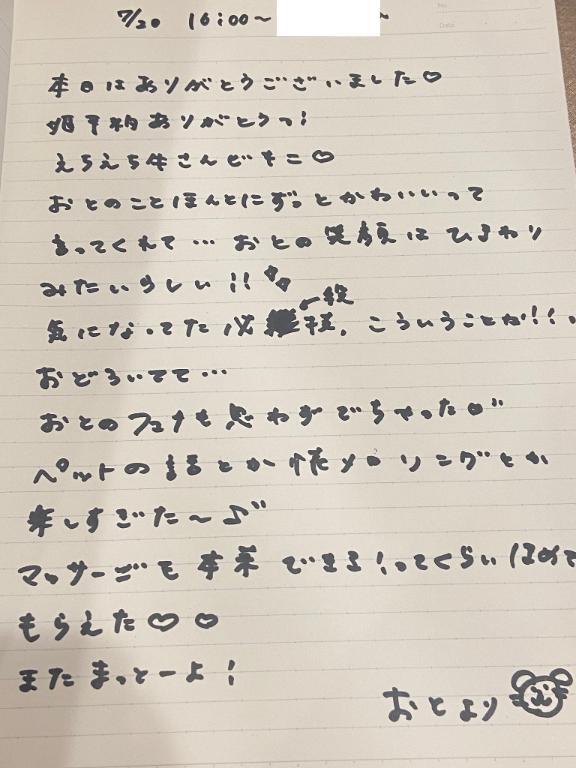 7/20 16:00〜 〜
本日はありがとうございました♡
ありがとうっ!
えらえら牛さんビキニ♡
おとのことほんとにずっとかわいいって
言ってくれて… おとの笑顔はひまわり
みたいらしい!!
←殺
気になってた必 技、こういうことか!!。
おどろいてて…
おとのフェチも思わずでちゃった
ペットの とか メロリングとか
楽しすごた〜♪
マッサージも本業できる!ってくらいほめて
もらえた♡♡
またまっとーよ!
おとより